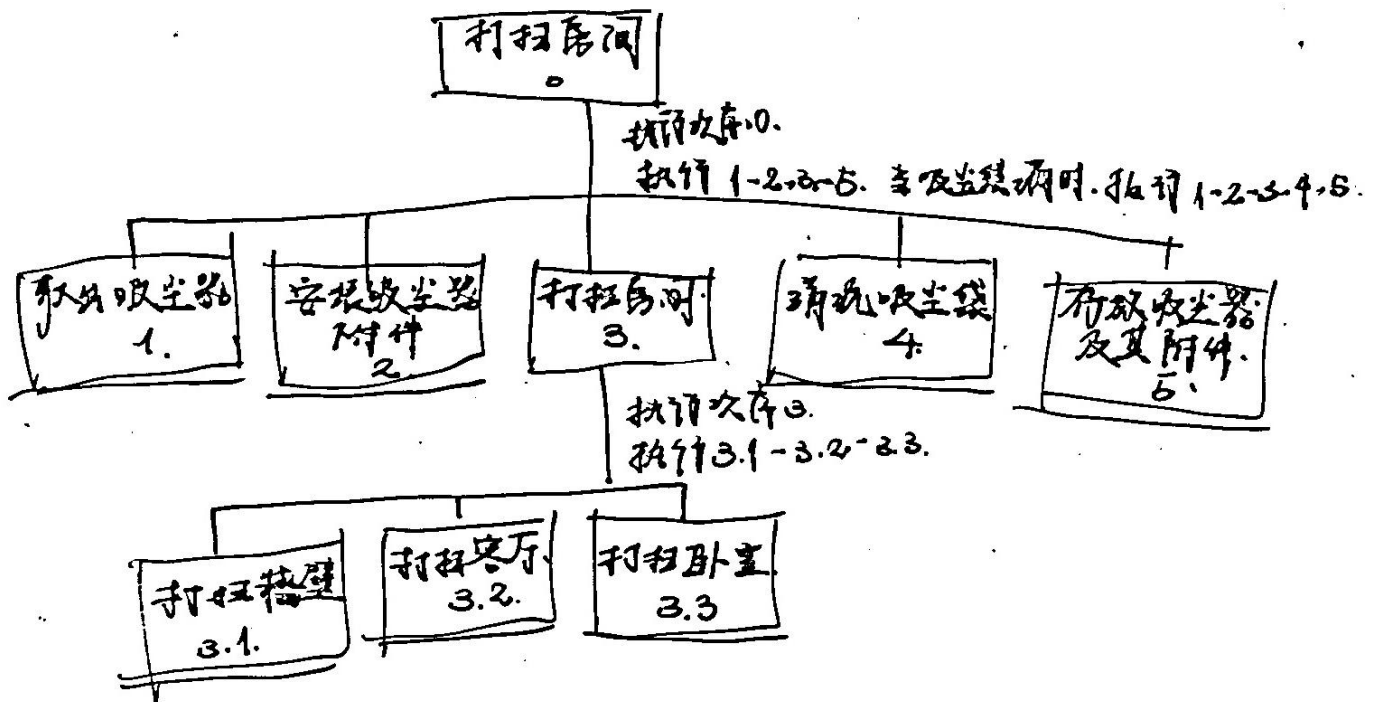 打扫房间
0
执行次序0.
执行1-2-3-5. 当吸尘袋满时.执行1-2-3-4-5.
取出吸尘器
1.
安装吸尘器
附件
2
打扫房间
3.
清洗吸尘袋
4.
存放吸尘器
及其附件.
5.
执行次序3.
执行3.1-3.2-3.3.
打扫墙壁
3.1.
打扫客厅
3.2.
打扫卧室
3.3